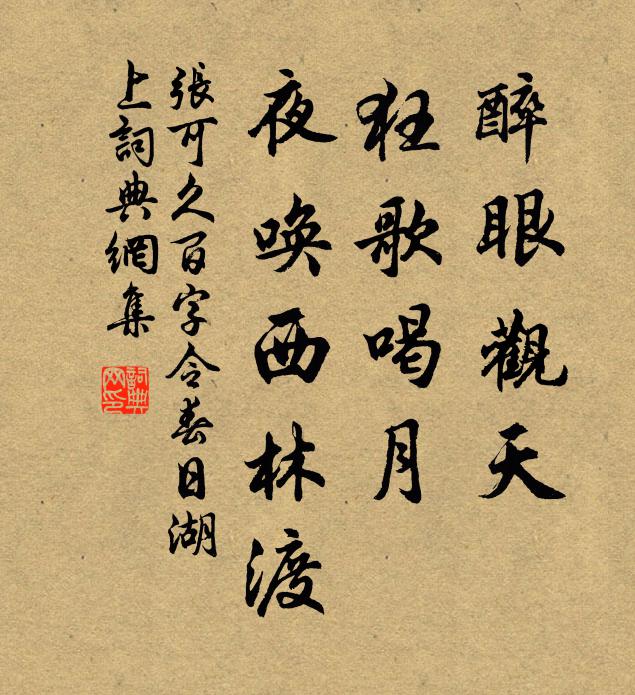 醉眼觀天
狂歌喝月
夜喚西林渡
張可久百字令春日湖
上詞典網集
詞典網印